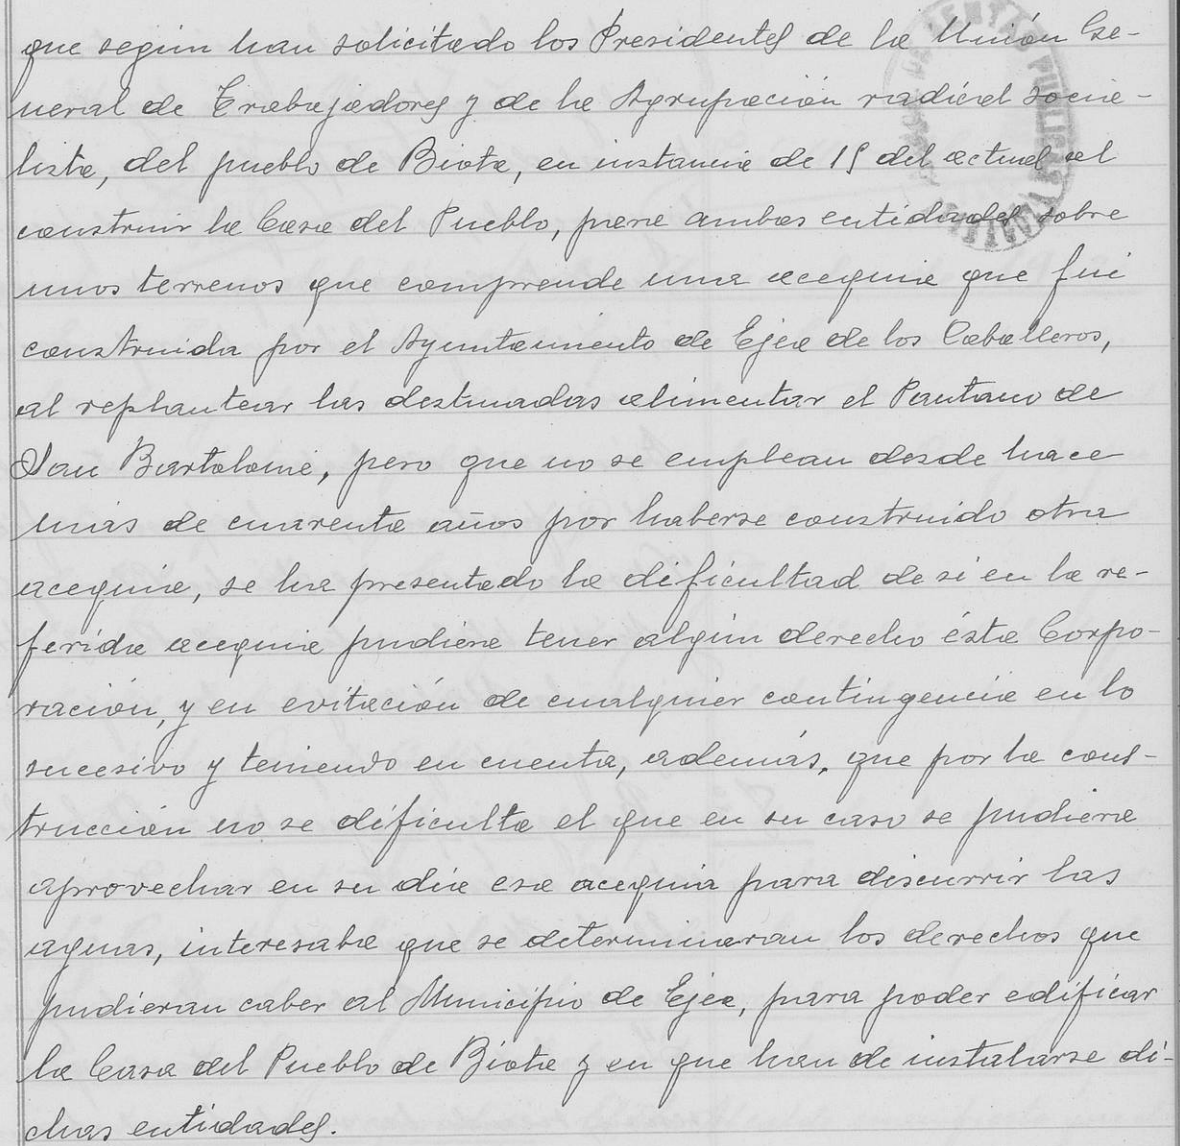 que según han solicitado los Presidentes de la Unión Ge-
neral de Trabajadores y de la Agrupación radical socia-
lista, del pueblo de Biota, en instancia de 15 del actual al
construir la Casa del Pueblo, para ambas entidades sobre
unos terrenos que comprende una acequia que fué
construida por el Ayuntamiento de Ejea de los Caballeros,
al replantear las destinadas alimentar el Pantano de
San Bartolomé, pero que no se emplean desde hace
más de cuarenta años por haberse construido otra
acequia, se ha presentado la dificultad de si en la re-
ferida acequia pudiera tener algún derecho ésta Corpo-
ración, y en evitación de cualquier contingencia en lo
sucesivo y teniendo en cuenta, además, que por la cons-
trucción no se dificulta el que en su caso se pudiera
aprovechar en su día esa acequia para discurrir las
aguas, interesaba que se determinaran los derechos que
pudieran caber al Municipio de Ejea, para poder edificar
la Casa del Pueblo de Biota y en que han de instalarse di-
chas entidades.